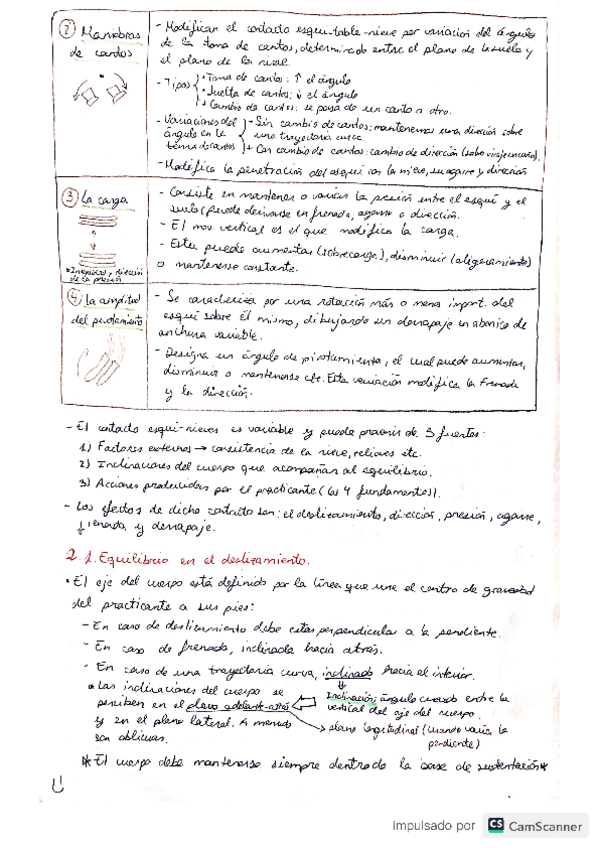 ② Maniobras de cantos
- Modificar el contacto esquí-table-nieve por variación del ángulo
de la toma de cantos, determinado entre el plano de la suela y
el plano de la nieve.
- Tipos
• Toma de cantos: ↑ el ángulo
• Suelta de cantos: ↓ el ángulo
• Cambio de cantos: se pasa de un canto a otro.
- Variaciones del ángulo en la toma de cantos
- Sin cambio de cantos: mantenemos una dirección sobre
una trayectoria curva
+ Con cambio de cantos: cambio de dirección
- Modifica la penetración del esquí con la nieve, su agarre y dirección
③ La carga
* Intensidad y dirección de la presión
- Consiste en mantener o variar la presión entre el esquí y el
suelo (puede derivarse en frenada, agarre o dirección.
- El mov vertical es el que modifica la carga.
- Esta puede aumentar (sobrecarga), disminuir (aligeramiento)
o mantenerse constante.
④ La amplitud del pivotamiento
- Se caracteriza por una rotación más o menos import. del
esquí sobre él mismo, dibujando un derrapaje en abanico de
anchura variable.
- Designa un ángulo de pivotamiento, el cual puede aumentar,
disminuir o mantenerse cte. Esta variación modifica la frenada
y la dirección.
- El contacto esquí-nieves es variable y puede provenir de 3 fuentes:
1) Factores externos → consistencia de la nieve, relieves etc.
2) Inclinaciones del cuerpo que acompañan al equilibrio.
3) Acciones producidas por el practicante (los 4 fundamentos).
- Los efectos de dicho contacto son: el deslizamiento, dirección, presión, agarre,
frenada y derrapaje.
2.1. Equilibrio en el deslizamiento.
• El eje del cuerpo está definido por la línea que une el centro de gravedad
del practicante a sus pies:
- En caso de deslizamiento debe estar perpendicular a la pendiente.
- En caso de frenada, inclinada hacia atrás.
- En caso de una trayectoria curva, inclinado hacia el interior.
* Las inclinaciones del cuerpo se
perciben en el plano adelante-atrás
y en el plano lateral. A menudo
son oblicuas.
Inclinación: ángulo creado entre la
vertical del eje del cuerpo.
→ plano longitudinal (cuando varía la
pendiente)
* El cuerpo debe mantenerse siempre dentro de la base de sustentación *
Impulsado por CS CamScanner